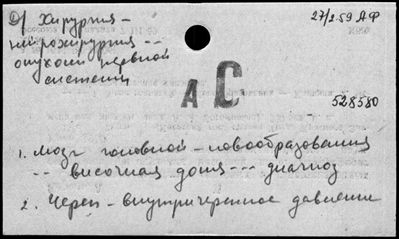 D/ Хирургия -
нейрохирургия --
опухоли нервной
системы
27/2 59 АФ
А С
528580
1. Мозг головной - новообразования
-- височная доля --- диагноз
2. Череп - внутричерепное давление